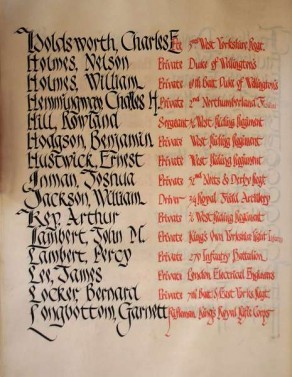 Holdsworth, Charles E. Pte 3rd West Yorkshire Regt.
Holmes, Nelson Private Duke of Wellington's
Holmes, William Private Batt. Duke of Wellington's
Hemmingway Charles H. Private 2nd Northumberland
Hill, Rowland Sergeant West Riding Regiment
Hodgson, Benjamin Private West Riding Regiment
Hustwick, Ernest Private West Riding Regiment
Inman, Joshua Private Notts & Derby Regt
Jackson, William Driver Royal Field Artillery
Key, Arthur Private West Riding Regiment
Lambert, John M. Private King's Own Yorkshire
Lambert, Percy Private 270 Infantry Battalion
Lee, James Private London Electrical Engineers
Locker Bernard Private 7th Batt. East Yorks Regt.
Longbottom, Garnett Rifleman, King's Royal Rifle Corps